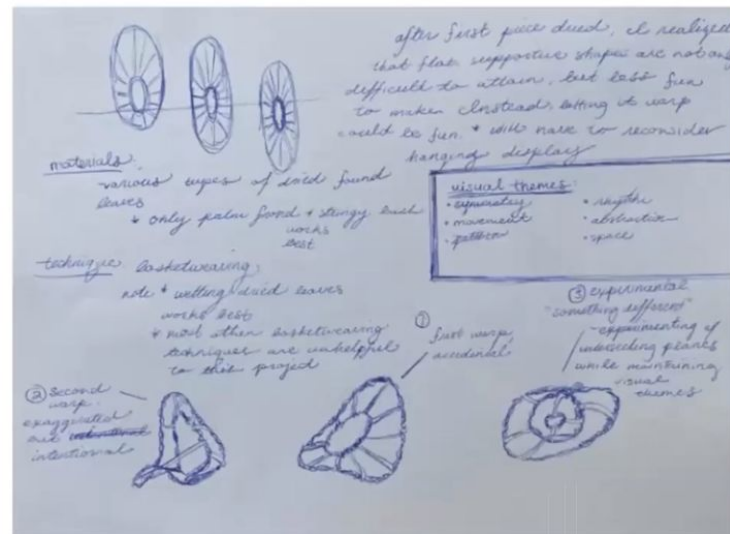 after first piece dried, I realized
that flat supportive shapes are not only
difficult to attain, but less fun
to make. Instead, letting it warp
could be fun. * will have to reconsider
hanging display
materials:
various types of dried found
leaves
* only palm frond + stringy bark
works
best
visual themes:
• symmetry
• movement
• pattern
• rhythm
• abstraction
• space
technique: basketweaving,
note * wetting dried leaves
works best
* most other basketweaving
techniques are unhelpful
to this project
① first warp
accidental
② second
warp
exaggerated
and
intentional
③ experimental
"something different"
experimenting w/
intersecting planes
while maintaining
visual
themes